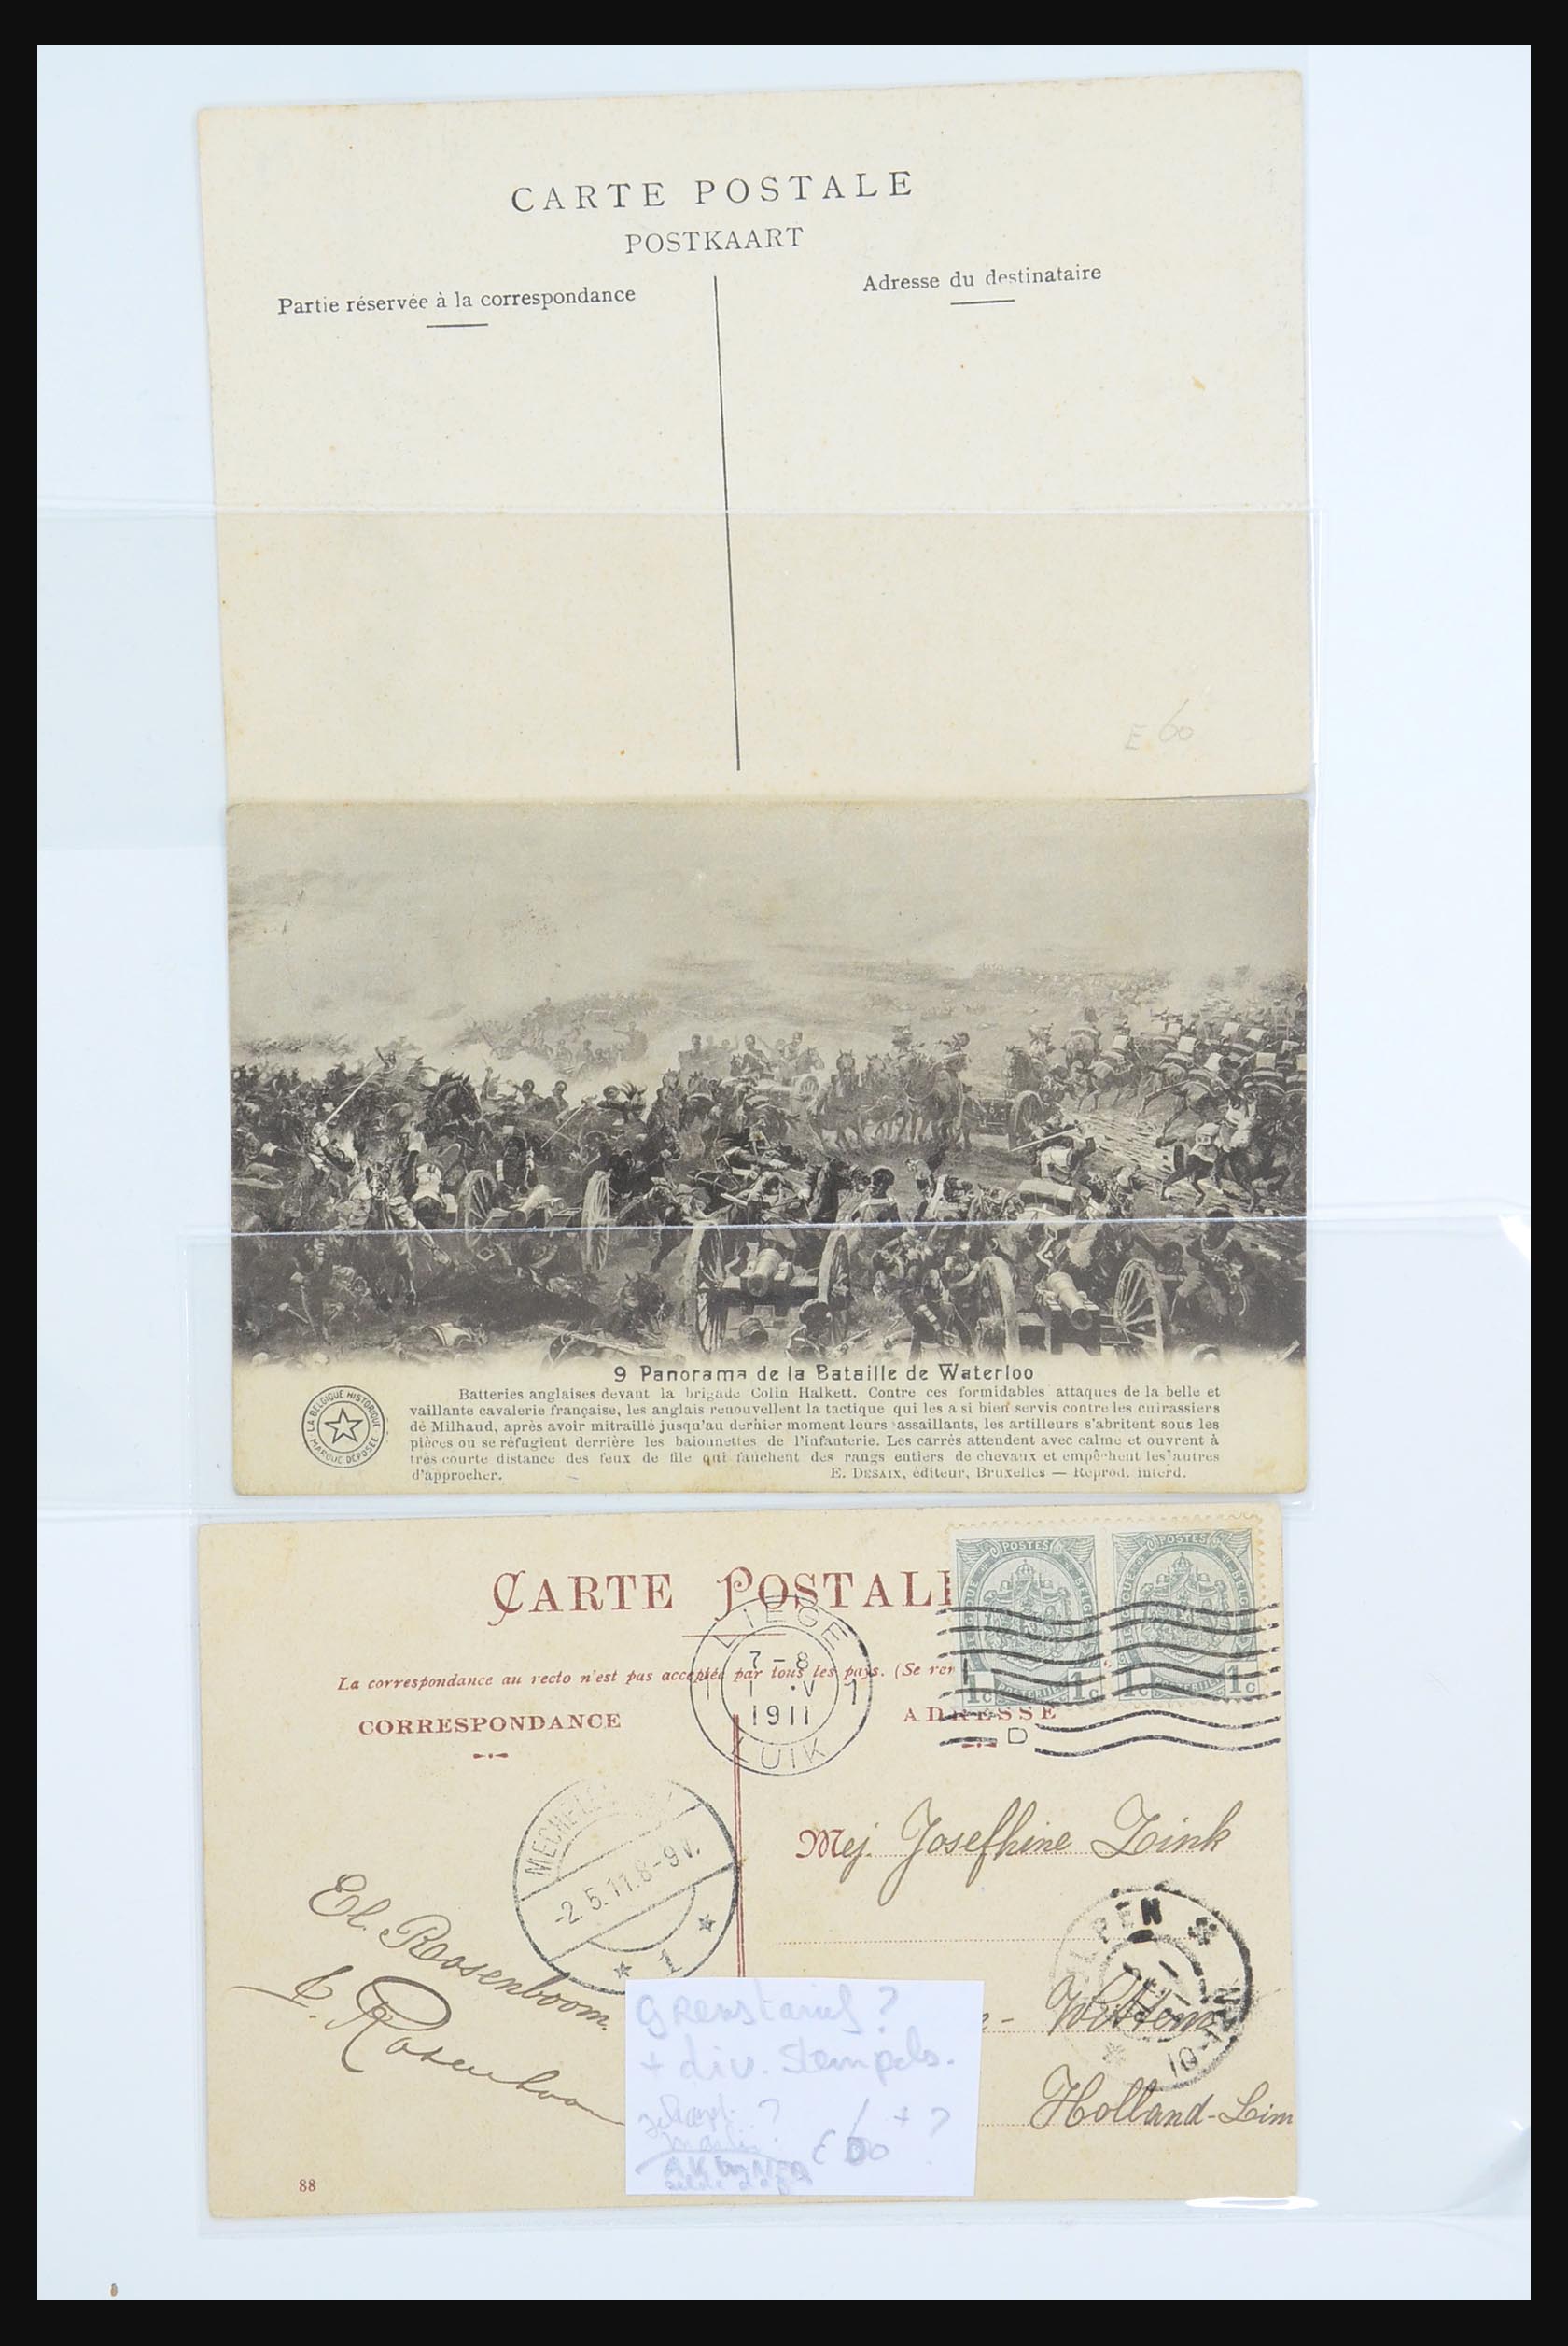 CARTE POSTALE
POSTKAART
Partie réservée à la correspondance
Adresse du destinataire
E 60
9 Panorama de la Bataille de Waterloo
LA BELGIQUE HISTORIQUE
MARQUE DÉPOSÉE
Batteries anglaises devant la brigade Colin Halkett. Contre ces formidables attaques de la belle et
vaillante cavalerie française, les anglais renouvellent la tactique qui les a si bien servis contre les cuirassiers
de Milhaud, après avoir mitraillé jusqu'au dernier moment leurs assaillants, les artilleurs s'abritent sous les
pièces ou se réfugient derrière les baïonnettes de l'infanterie. Les carrés attendent avec calme et ouvrent à
très courte distance des feux de file qui fauchent des rangs entiers de chevaux et empêchent les autres
d'approcher.
E. DESAIX, éditeur, Bruxelles — Reprod. interd.
CARTE POSTAL
POSTES
POSTES
1c 1c
1c 1c
LIEGE
7-8
1 IV 1
1911
LUIK
La correspondance au recto n'est pas acceptée par tous les pays. (Se ren
CORRESPONDANCE
ADRESSE
D
MECHELEN
-2.5.11.8-9V.
1
Mej. Josephine Zink
El. Roosenboom.
LPEN
10-12
Wittem
Holland-Lim
grenstarief ?
+ div. stempels.
? + ?
€ 60
88